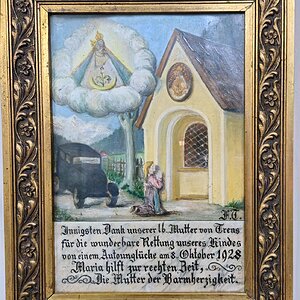 F.T.
Innigsten Dank unserer lb. Mutter von Trens
für die wunderbare Rettung unseres Kindes
von einem Autounglücke am 8. Oktober 1928
Maria hilft zur rechten Zeit,
Die Mutter der Barmherzigkeit.